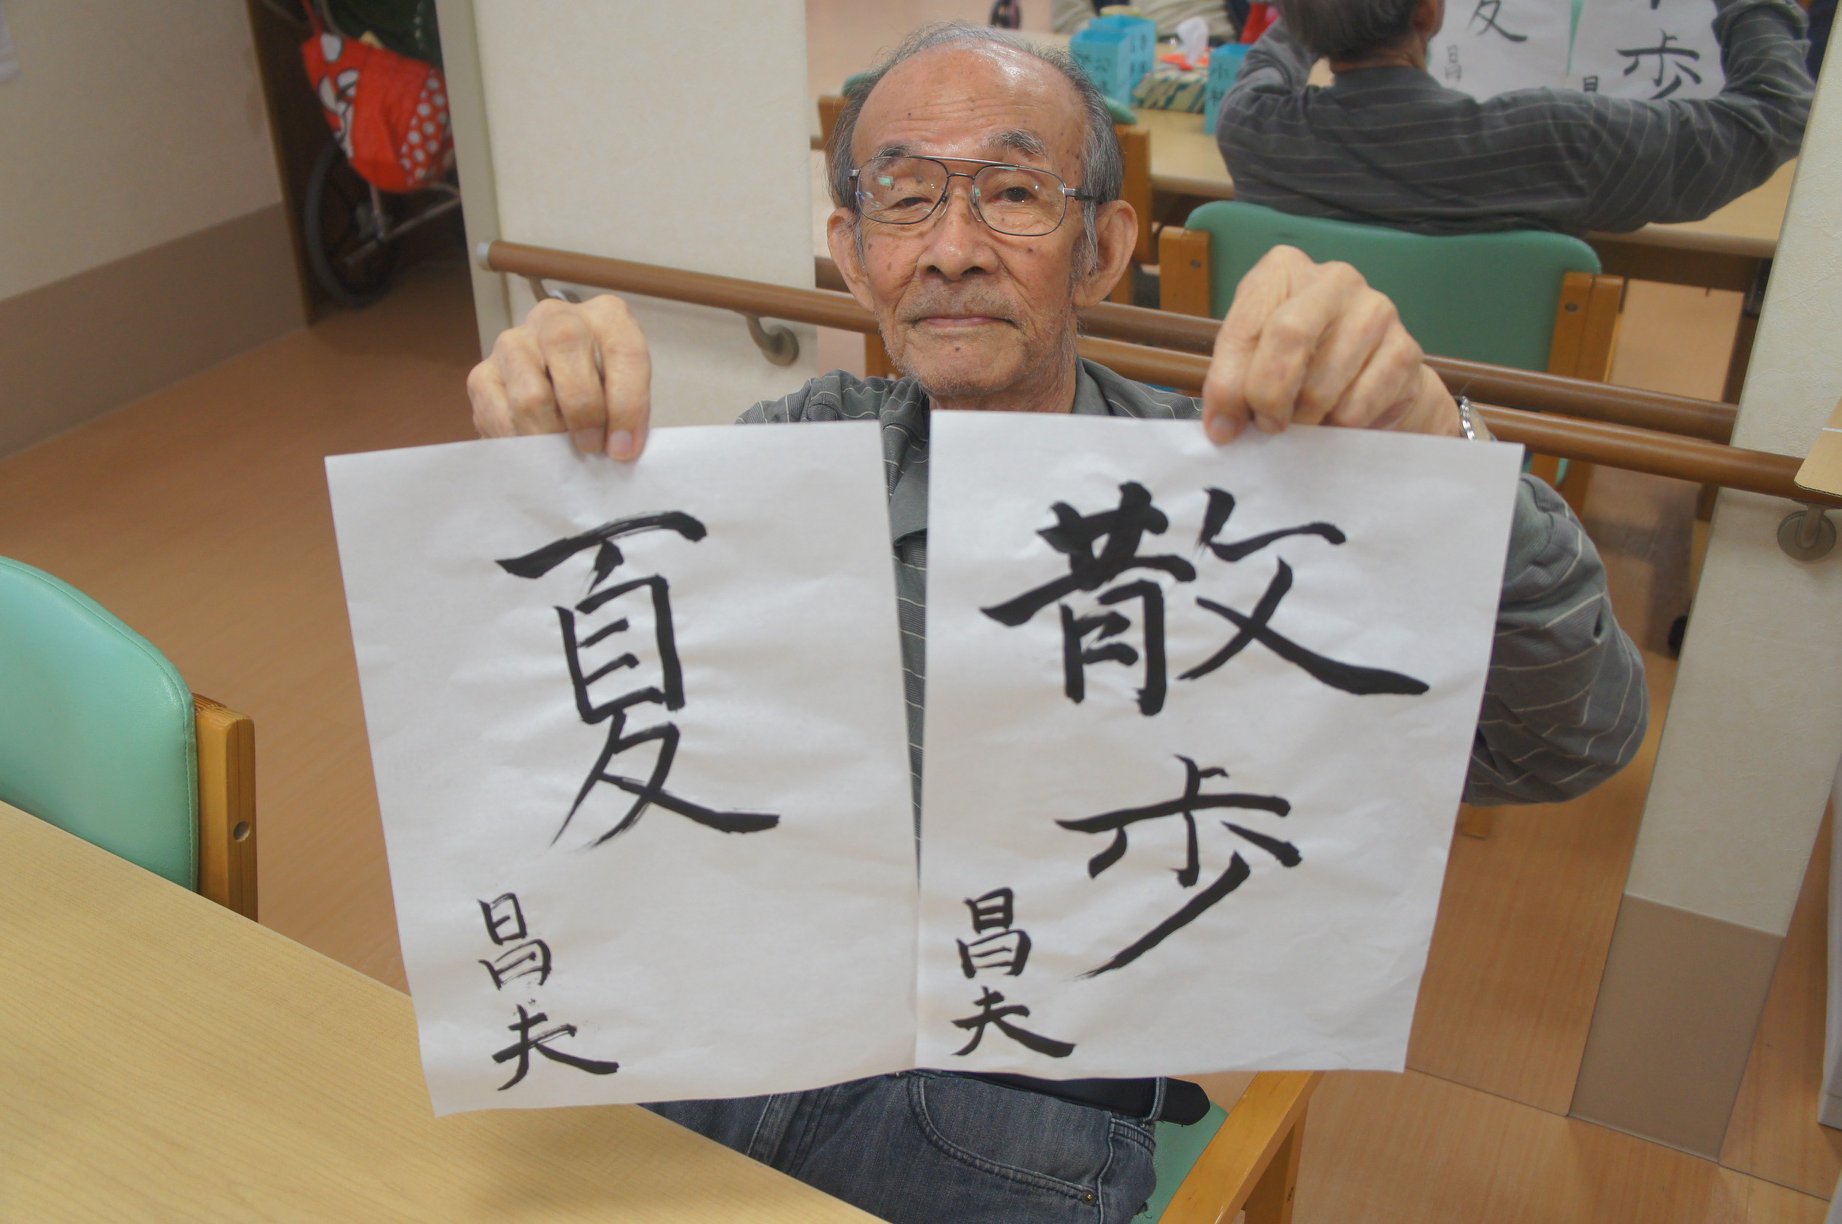 散歩
昌夫
夏
昌夫